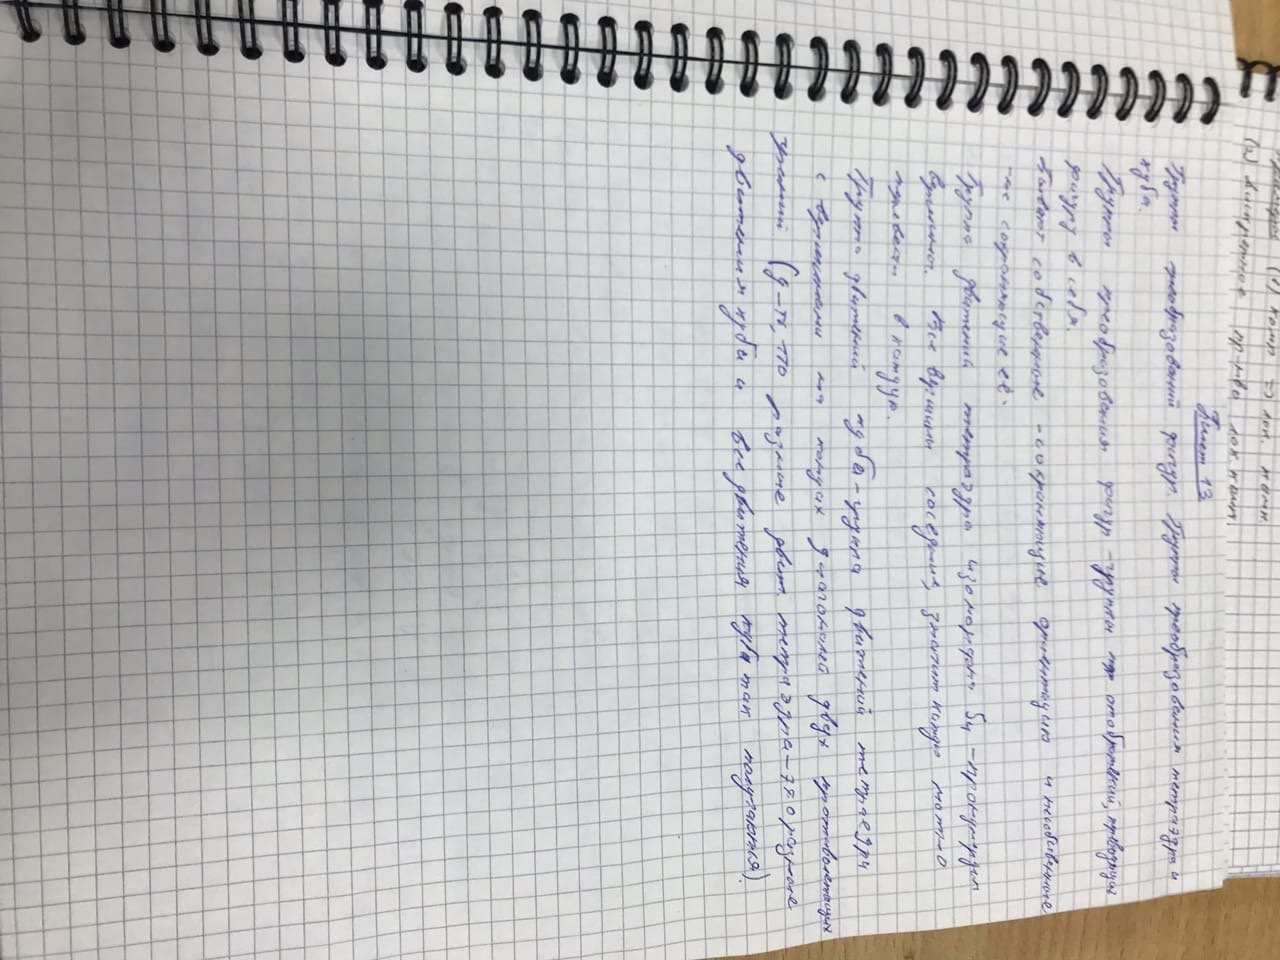 (1) комп => лок. комп.
(2) Дискретное пр-тва лок. комп.
Билет 13
Группы преобразований фигур. Группы преобразования тетраэдра и
куба.
Группы преобразования фигур - группы отображений, переводящих
фигуру в себя.
Бывают собственные - сохраняющие ориентацию и несобственные
- не сохраняющие её.
Группа движений тетраэдра изоморфна S4 - пронумеруем
вершины. Все вершины соседние, значит каждую можно
перевести в каждую.
Группа движений куба - группа движений тетраедра
с вершинами на концах диагоналей двух противолежащих
граней (д-ть, что разные движ. тетраэдра - это разные
движения куба и все движения куба так получаются).